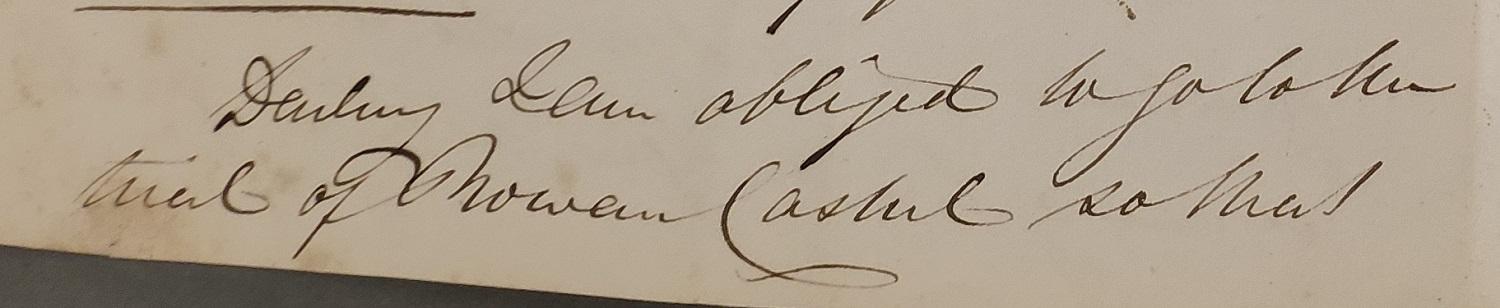 Darling I am obliged to go to the
trial of Rowan Cashel so that